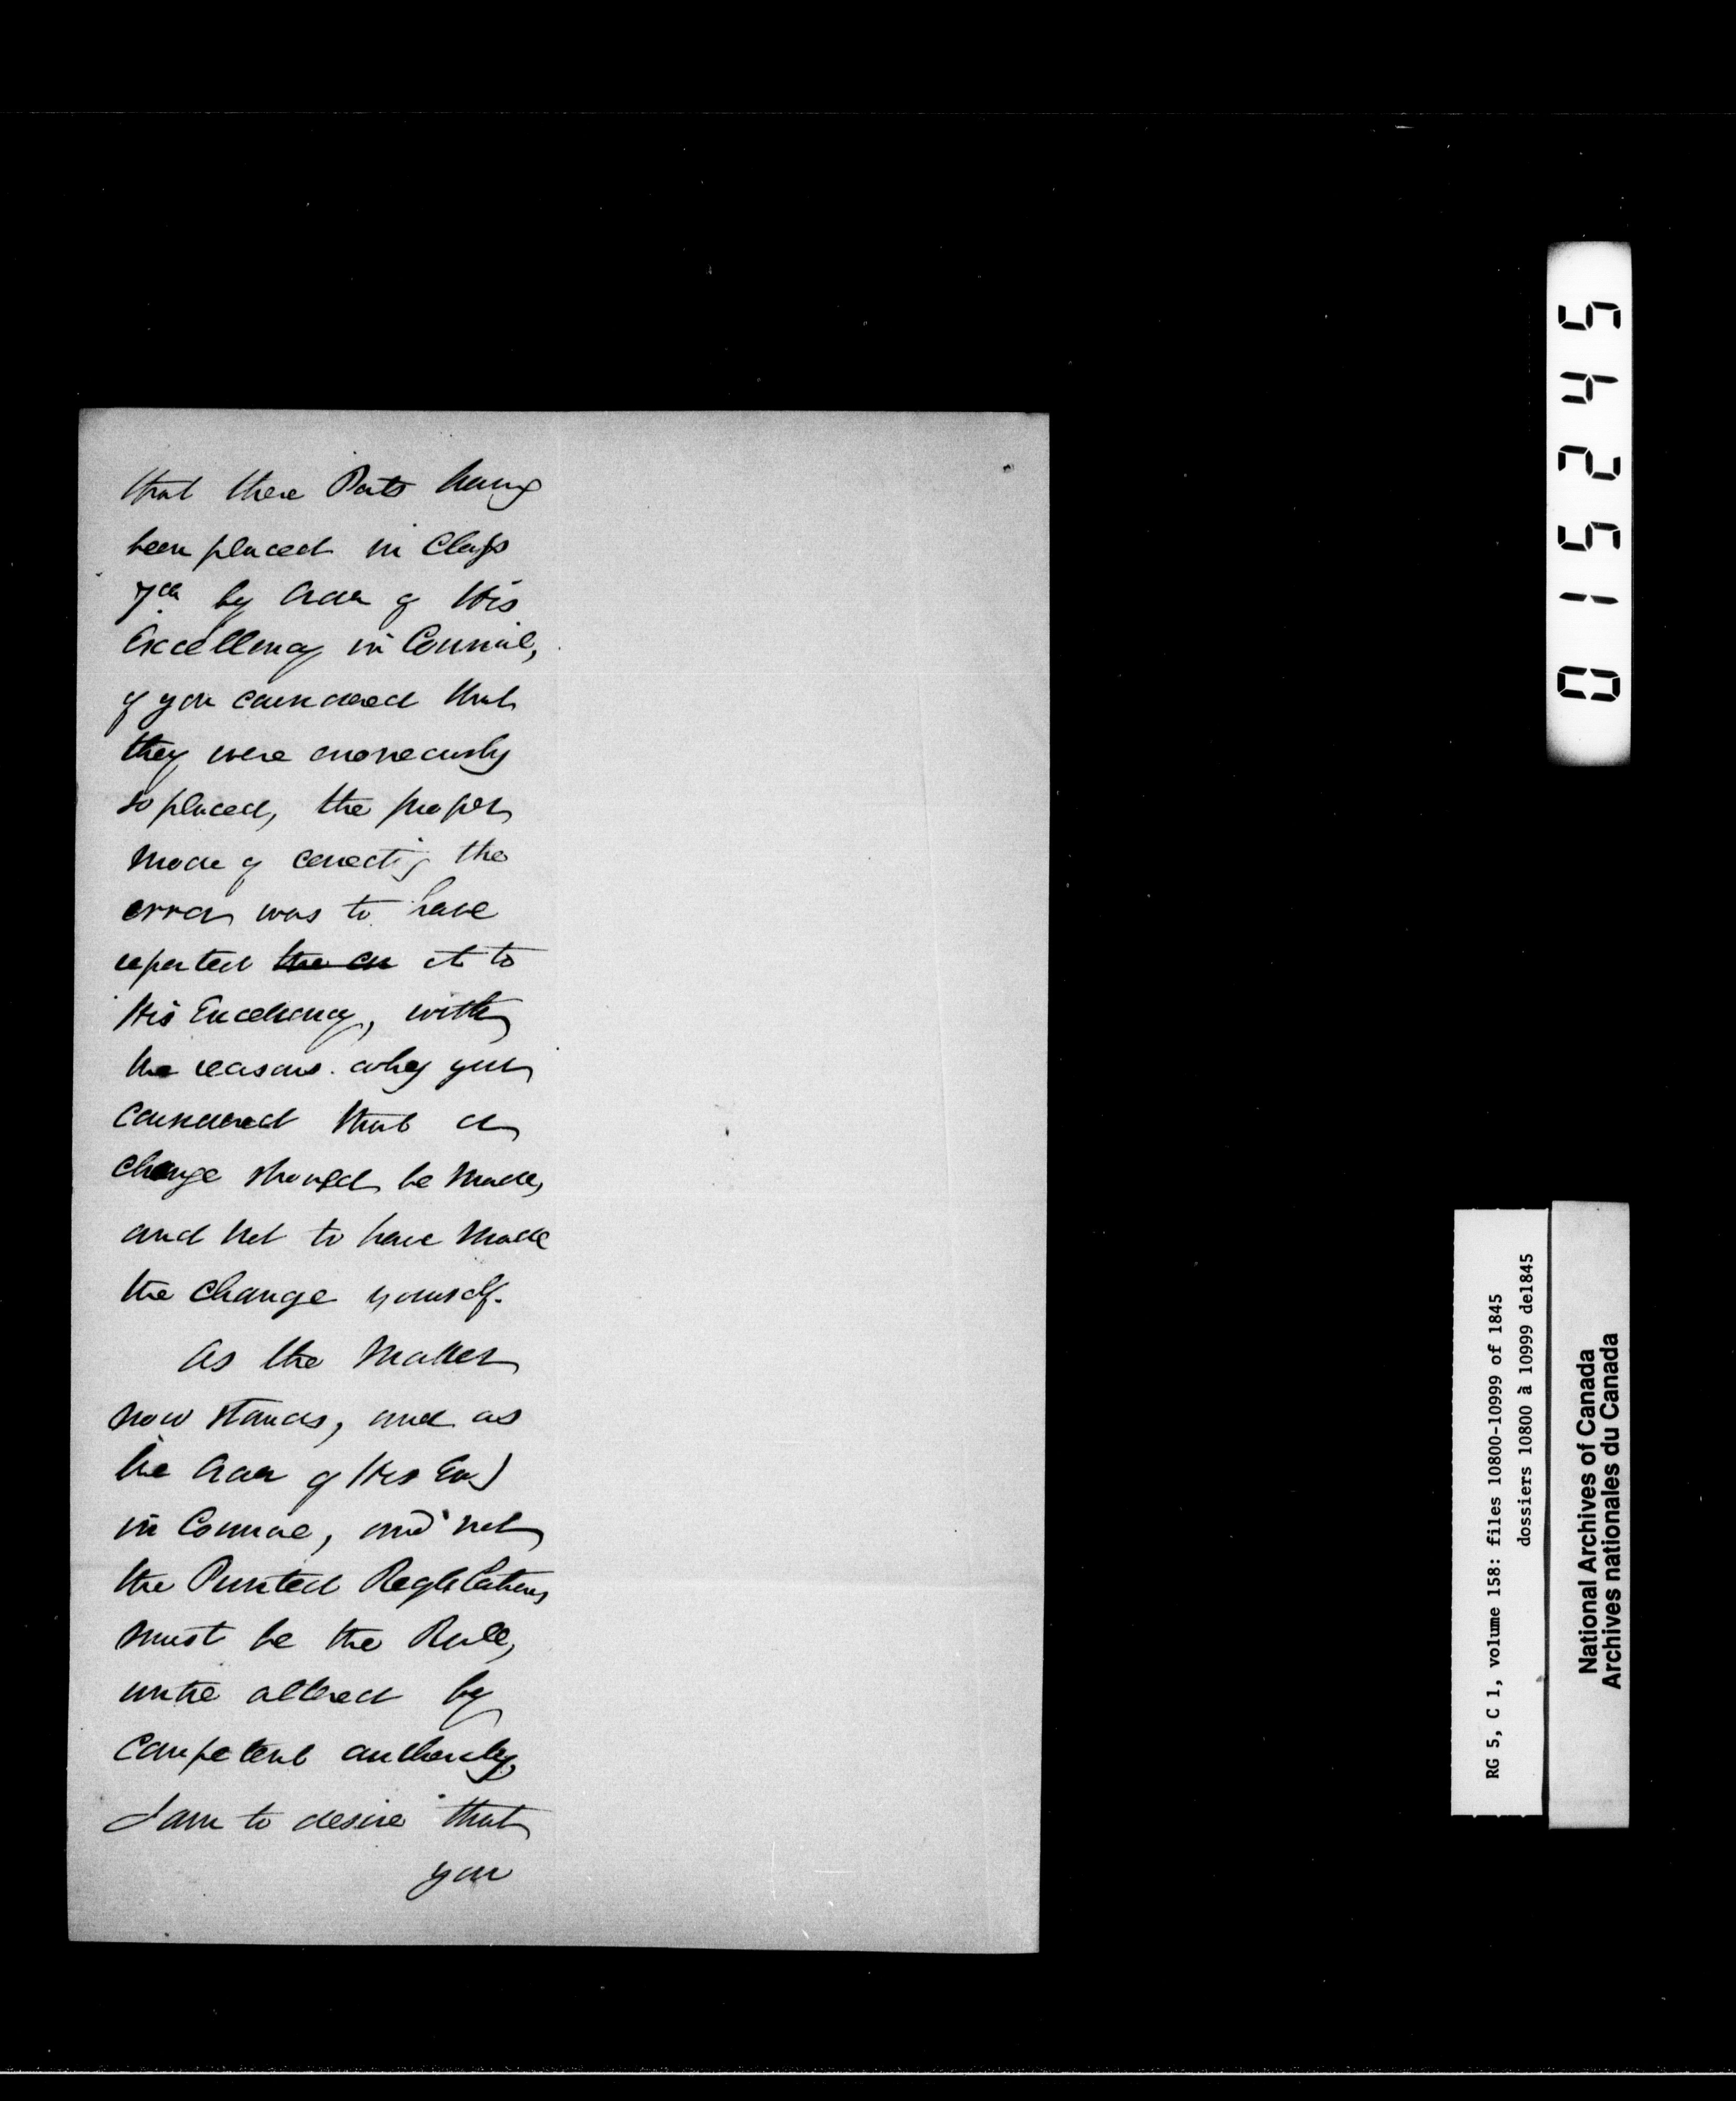 that these Ports having
been placed in Class
7th by Order of His
Excellency in Council,
if you considered that
they were erroneously
so placed, the proper
mode of correcting the
error was to have
reported the er it to
His Excellency, with
the reasons why you
considered that a
change should be made,
and not to have made
the change yourself.
As the matter
now stands, and as
the Order of His Exy
in Council, and not
the Printed Regulations
must be the Rule,
until altered by
competent authority,
I am to desire that
you
015245
RG 5, C 1, volume 158: files 10800-10999 of 1845
dossiers 10800 à 10999 de1845
National Archives of Canada
Archives nationales du Canada